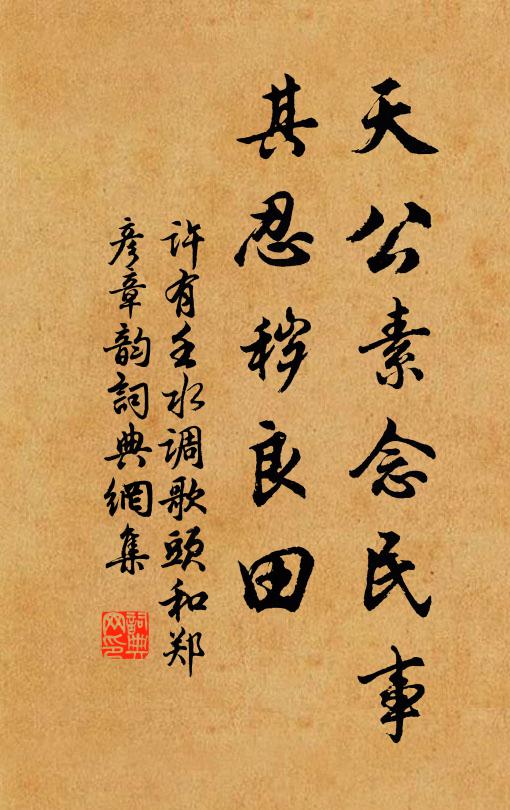 天公素念民事
其忍秽良田
许有壬水调歌頭和郑
彦章韵詞典網集
詞典网印